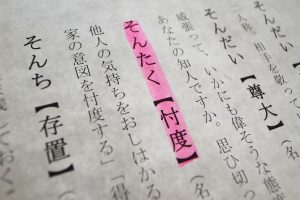 んだい【
人称。相手を敬っ
そんだい【尊大】（名
威張って、いかにも偉そうな態度
あなたの知人ですか。思ひ切っ
そんたく【忖度】（名
他人の気持ちをおしはかる
家の意図を忖度する」「得
そんち【存置】（名
しておく